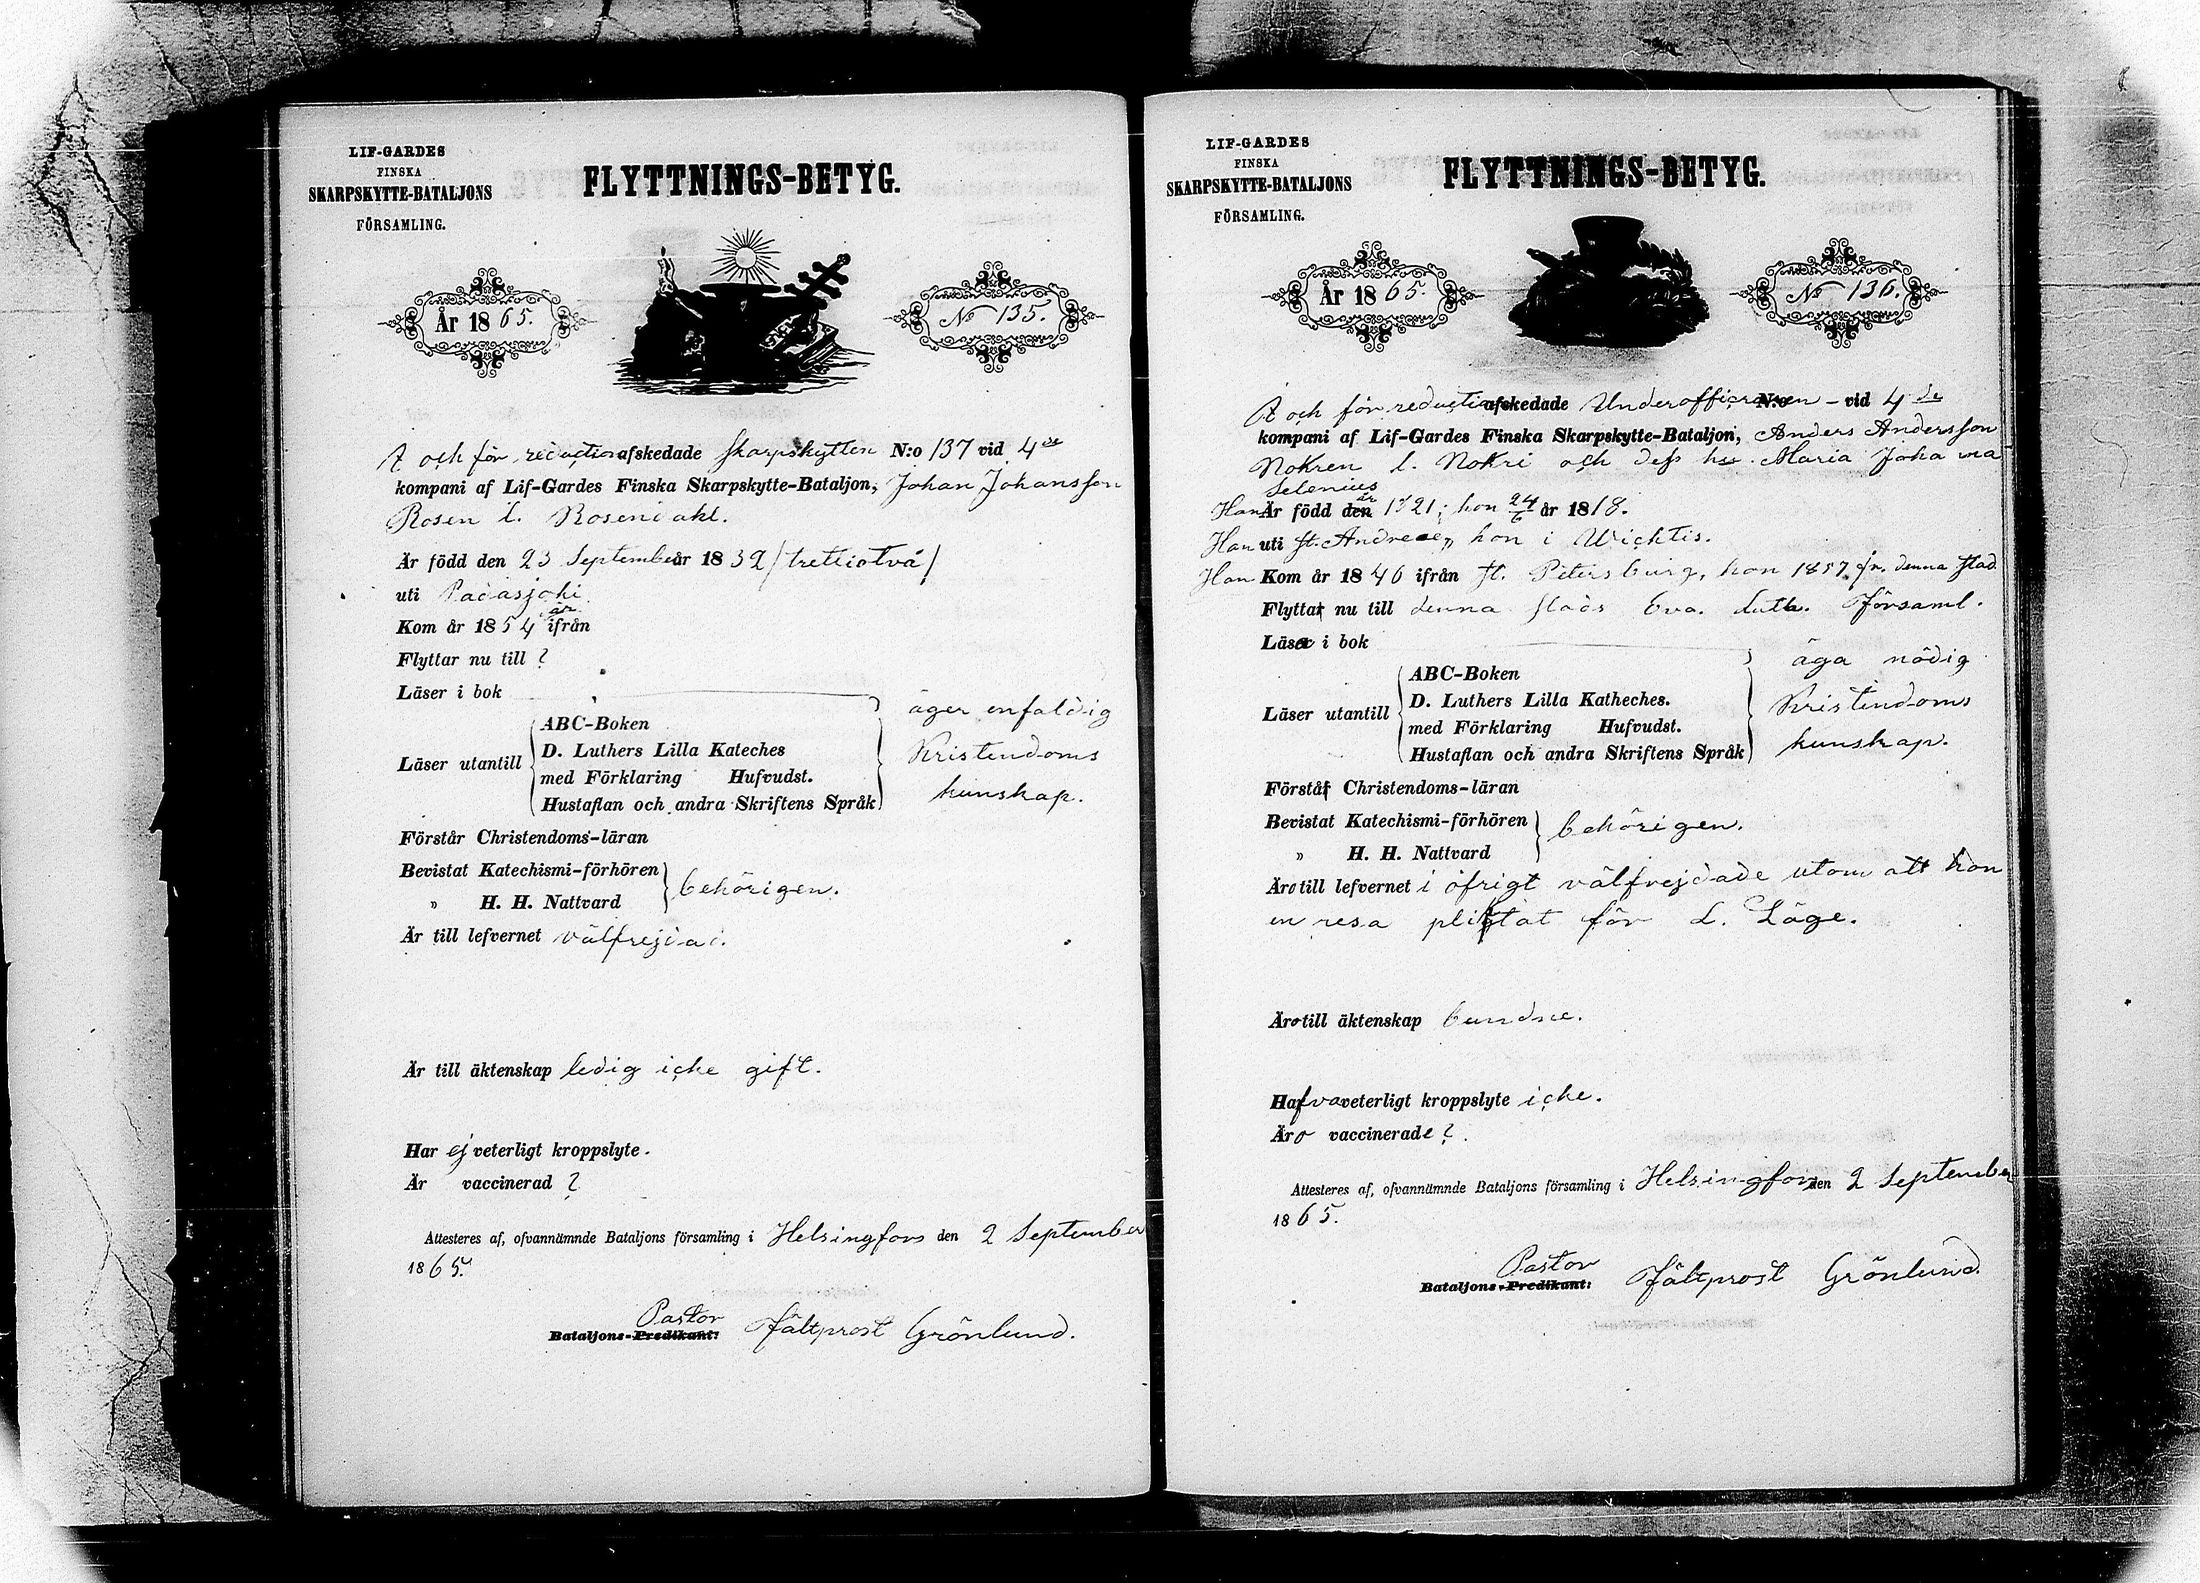 LIF-GARDES
FINSKA
SKARPSKYTTE-BATALJONS
FÖRSAMLING.
FLYTTNINGS-BETYG.
År 1865.
No 135.
A och för reduction afskedade Skarpskytten N:o 137 vid 4de
kompani af Lif-Gardes Finska Skarpskytte-Bataljon, Johan Johansson
Rosen l. Rosendahl.
Är född den 23 September år 1832 /trettiotvå/
uti Padasjoki
Kom år 1854 är ifrån
Flyttar nu till ?
Läser i bok
Läser utantill
ABC-Boken
D. Luthers Lilla Kateches
med Förklaring Hufvudst.
Hustaflan och andra Skriftens Språk
äger enfaldig
Kristendoms
kunskap.
Förstår Christendoms-läran
Bevistat Katechismi-förhören
" H. H. Nattvard
behörigen.
Är till lefvernet välfrejdad.
Är till äktenskap ledig icke gift.
Har ej veterligt kroppslyte.
Är vaccinerad ?
Attesteres af, ofvannämnde Bataljons församling i Helsingfors den 2 September
1865.
Pastor
Bataljons-Predikant: Fältprost Grönlund.
LIF-GARDES
FINSKA
SKARPSKYTTE-BATALJONS
FÖRSAMLING.
FLYTTNINGS-BETYG.
År 1865.
No 136.
A och för reduction afskedade Underofficeraren N:o – vid 4de
kompani af Lif-Gardes Finska Skarpskytte-Bataljon, Anders Andersson
Nokren l. Nokri och dess hu Maria Johanna
Selenius
Han Är född den år 1821; hon 24/6 år 1818.
Han uti St. Andreae, hon i Wichtis.
Han Kom år 1846 ifrån St. Petersburg, hon 1857 fr. denna stad
Flyttar nu till denna stads Eva. Luth. Församl.
Läser i bok
Läser utantill
ABC-Boken
D. Luthers Lilla Katheches.
med Förklaring Hufvudst.
Hustaflan och andra Skriftens Språk
äga nödig
Kristendoms
kunskap.
Förstår Christendoms-läran
Bevistat Katechismi-förhören
" H. H. Nattvard
behörigen.
Äro till lefvernet i öfrigt välfrejdade utom att hon
en resa pligtat för L. Läge.
Äro till äktenskap bundne.
Hafva veterligt kroppslyte icke.
Äro vaccinerade ?
Attesteres af, ofvannämnde Bataljons församling i Helsingfors den 2 September
1865.
Pastor
Bataljons-Predikant: Fältprost Grönlund.